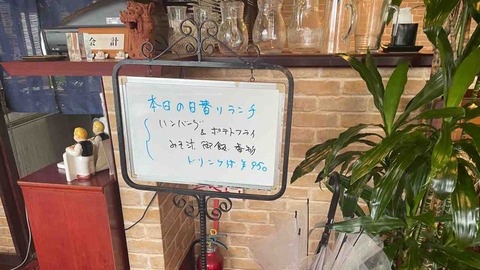 会計
本日の日替りランチ
ハンバーグ & ポテトフライ
みそ汁 御飯 香物
ドリンク付 ¥950